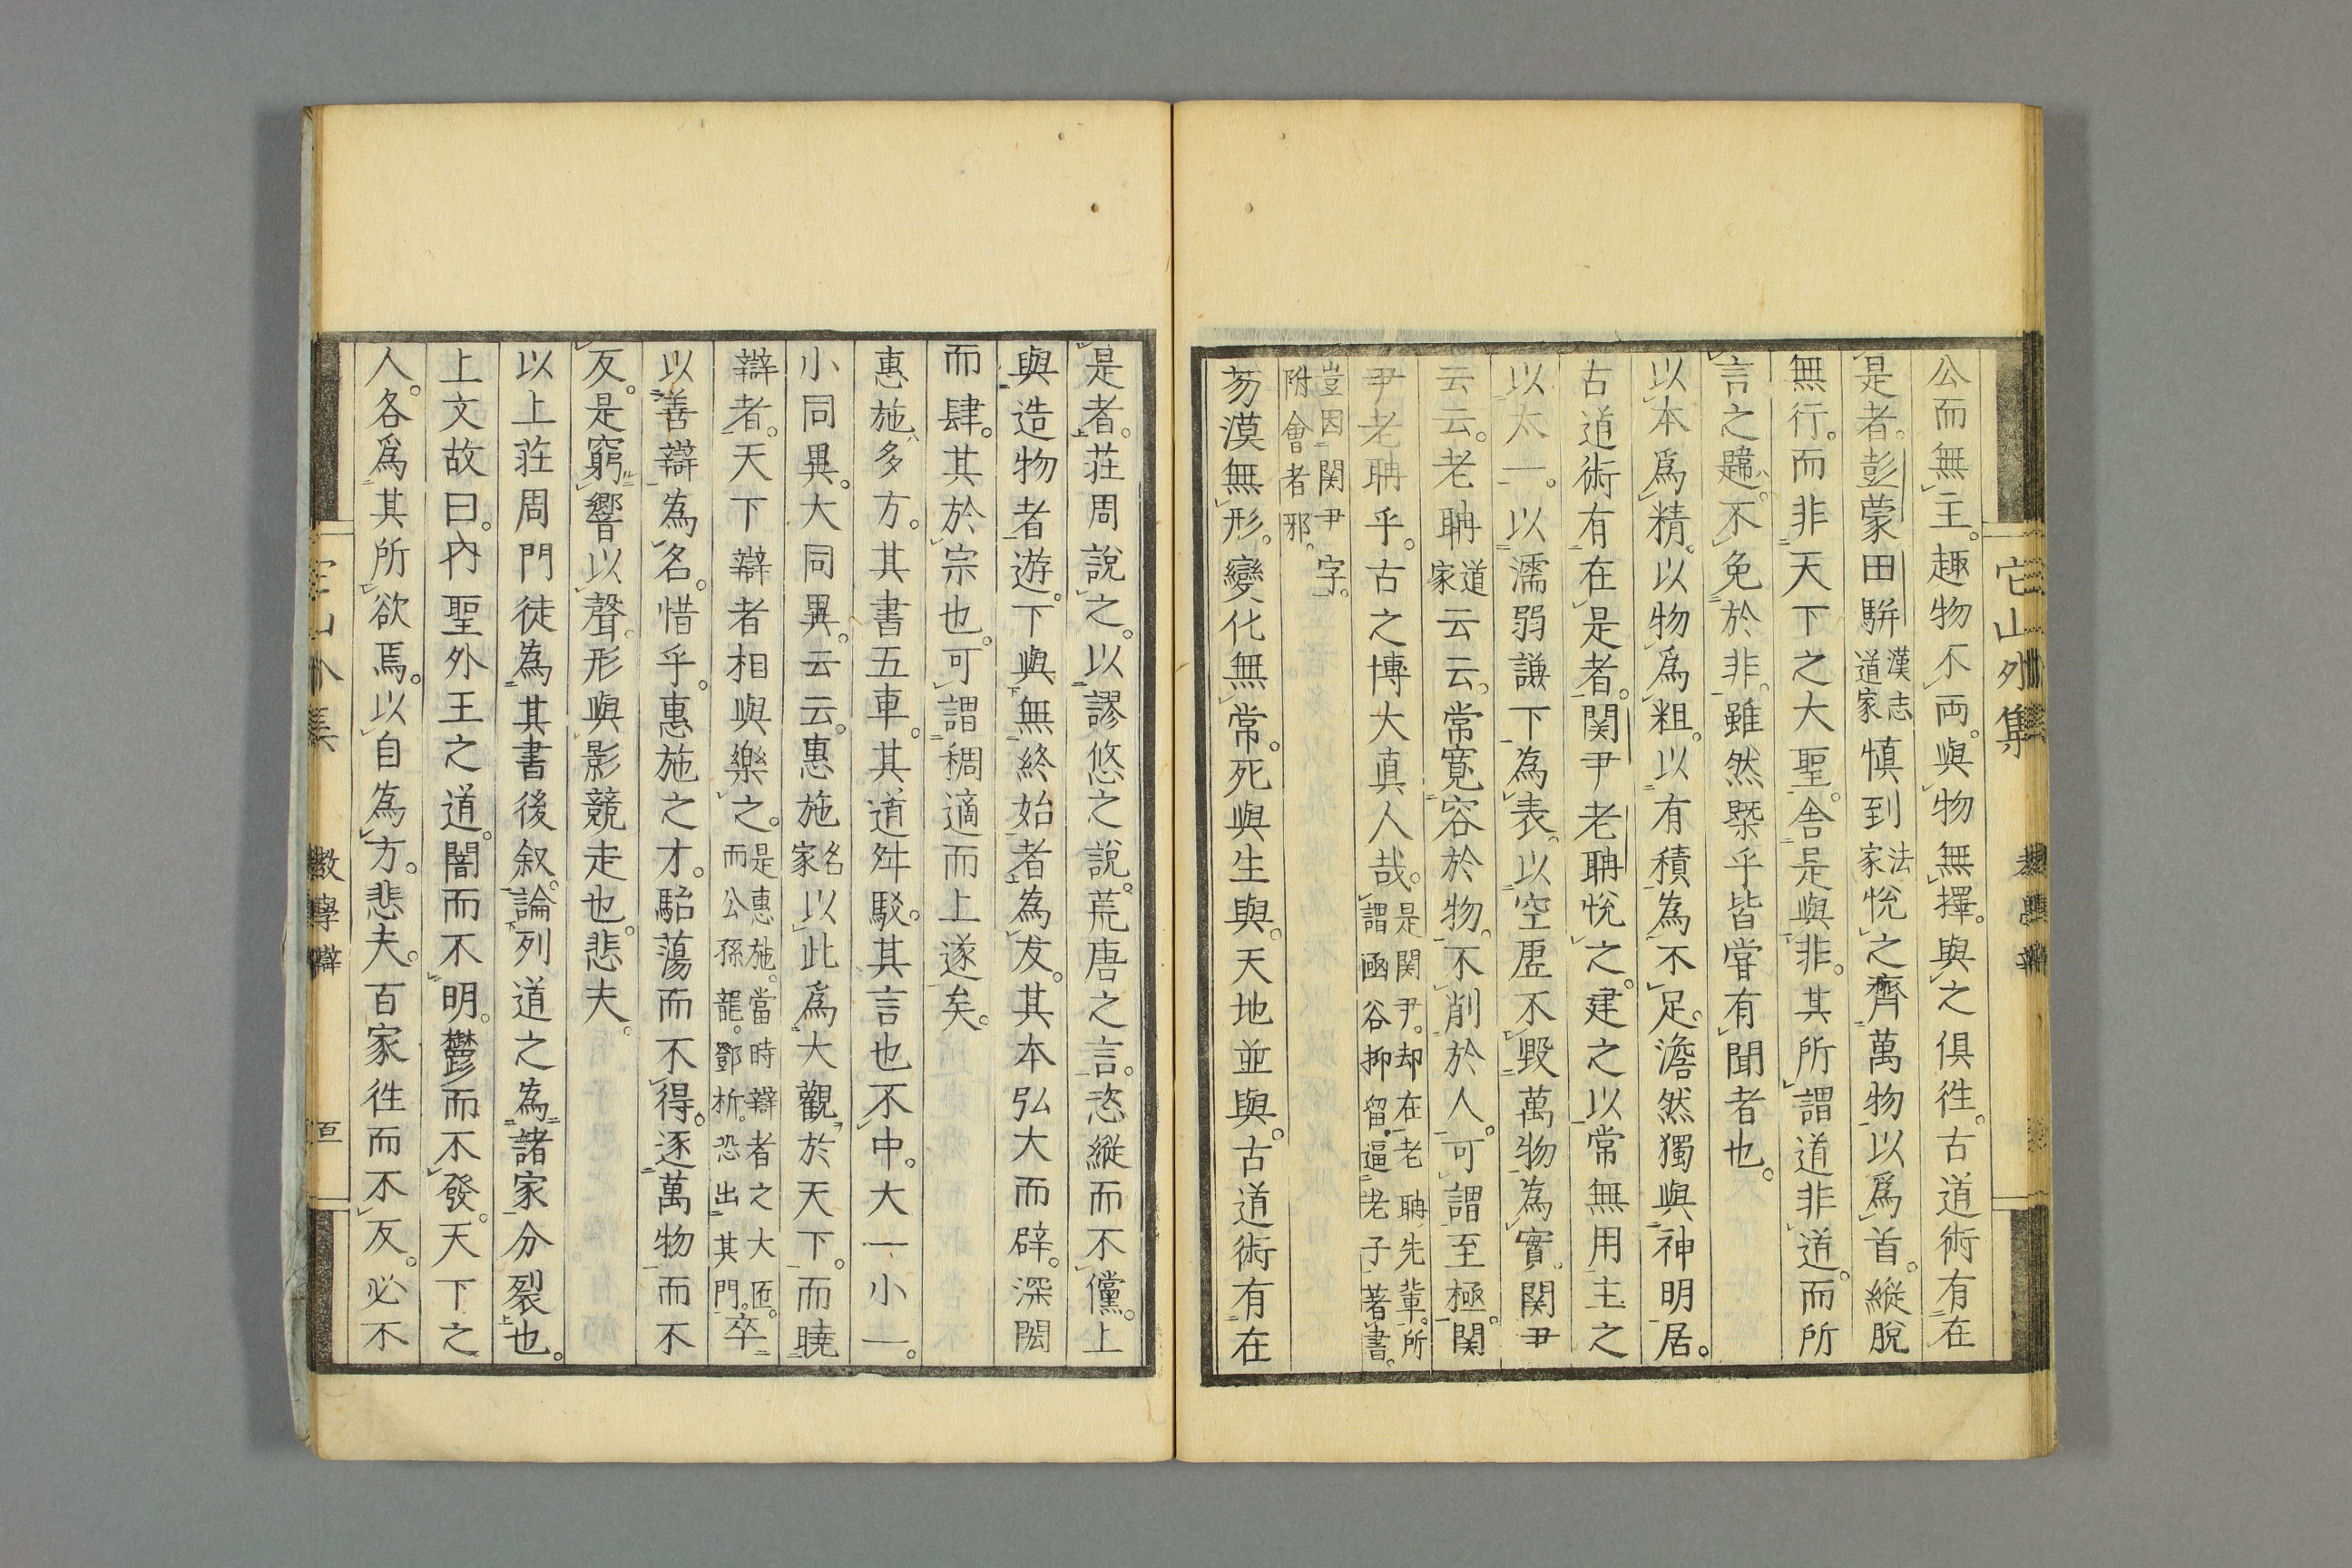 它山外集
公而無主。趣物不両。與物無擇。與之俱徃。古道術有在
是者。彭蒙田駢漢志道家慎到法家悅之齊萬物以爲首。縱脫
無行。而非天下之大聖。舍是與非。其所謂道非道。而所
言之韙。不免於非。雖然槩乎皆甞有聞者也。
以本爲精。以物爲粗。以有積為不足。澹然獨與神明居。
古道術有在是者。関尹老聃悅之。建之以常無用主之
以太一。以濡弱謙下為表。以空虛不毀萬物為實。関尹
云云。老聃道家云云。常寬容於物。不削於人。可謂至極。関
尹老聃乎。古之博大真人哉。是関尹。却在老聃先輩。所謂凾谷抑留。逼老子著書。
豈因関尹字。附會者邪。
芴漠無形。變化無常。死與生與。天地並與。古道術有在
是者。莊周說之。以謬悠之說。荒唐之言。恣縱而不儻。上
與造物者遊。下與無終始者為友。其本弘大而辟。深閎
而肆。其於宗也。可謂稠適而上遂矣。
惠施多方。其書五車。其道舛駁。其言也不中。大一小一。
小同異。大同異。云云。惠施名家以此爲大觀於天下。而曉
辯者。天下辯者相與樂之。是惠施。當時辯者之大匠。而公孫龍。鄧析。恐出其門。卒
以善辯為名。惜乎。惠施之才。駘蕩而不得。逐萬物而不
反。是窮響以聲。形與影競走也。悲夫。
以上莊周門徒為其書後叙。論列道之為諸家分裂也。
上文故曰。內聖外王之道。闇而不明。鬱而不發。天下之
人。各爲其所欲焉。以自為方。悲夫。百家徃而不反。必不
數學辯